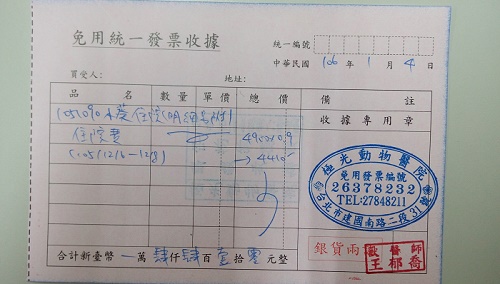 免用統一發票收據
統一編號
中華民國 106 年 1 月 4 日
買受人: 地址:
品名 數量 單價 總價 備註
住院費 4900×0.9
(105/12/6-12/8) → 4410
收據專用章
極光動物醫院
免用發票編號
26378232
TEL:27848211
台北市建國南路二段31號
合計新臺幣 萬肆仟肆百壹拾零元整
銀貨兩
獸醫師
王郁喬